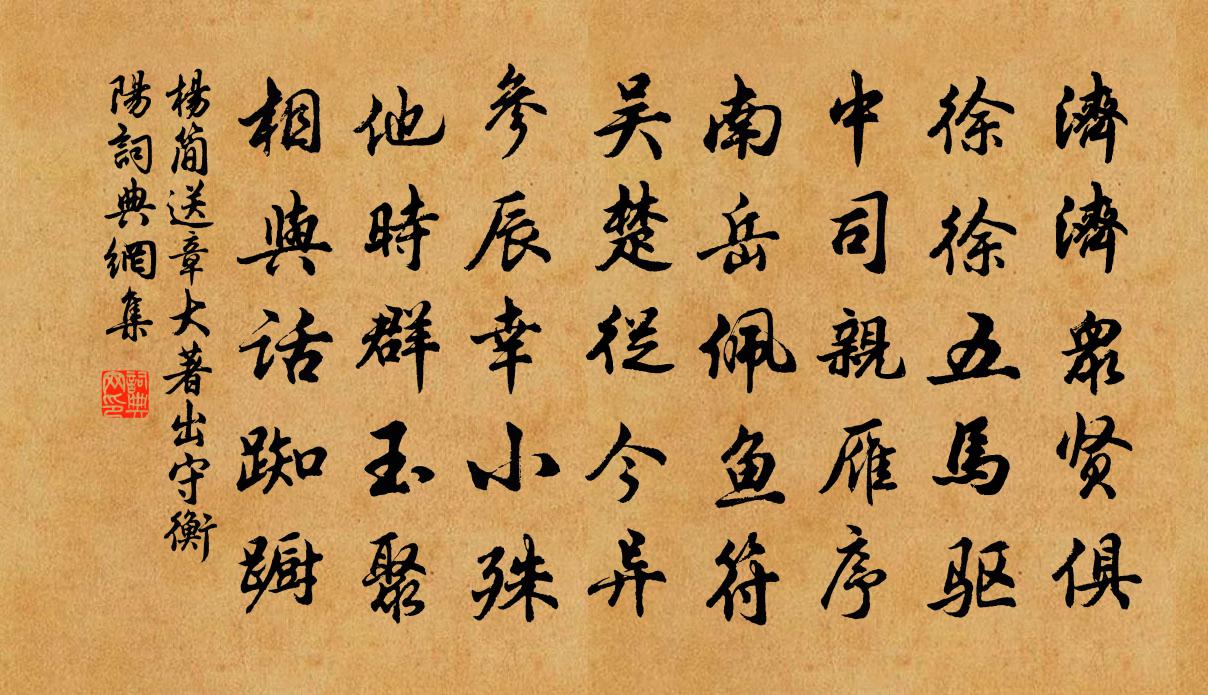 濟濟眾贤俱
徐徐五馬驱
中司親雁序
南岳佩鱼符
吴楚從今异
參辰幸小殊
他時群玉聚
相與话踟蹰
楊簡送章大著出守衡
陽詞典網集
詞典
网印